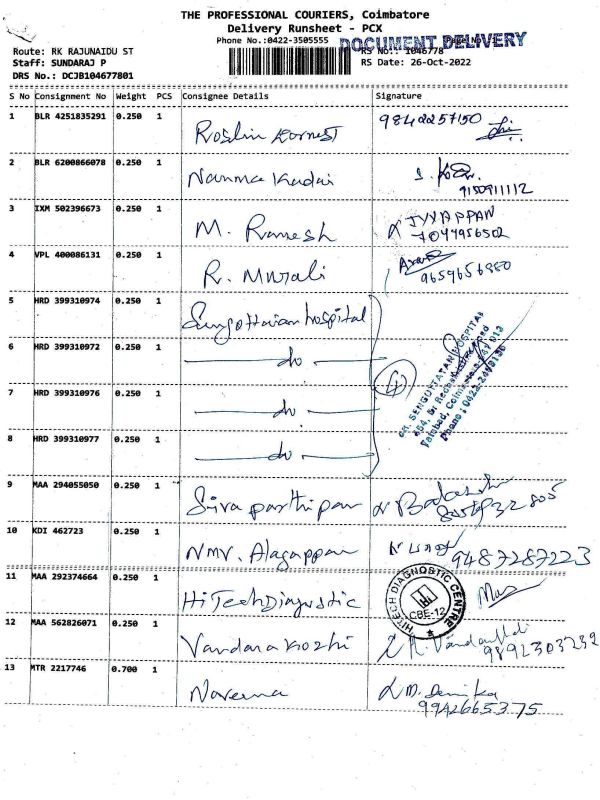 THE PROFESSIONAL COURIERS, Coimbatore
Delivery Runsheet - PCX
Phone No.:0422-3505555
DOCUMENT DELIVERY
Route: RK RAJUNAIDU ST
RS No.: 1046778
Staff: SUNDARAJ P
RS Date: 26-Oct-2022
DRS No.: DCJB104677801
S No Consignment No Weight PCS Consignee Details Signature
1 BLR 4251835291 0.250 1 Roslin 9842257150
2 BLR 6200866078 0.250 1 Nanma Kadai
9150911112
3 IXM 502396673 0.250 1 M. Ramesh IYYAPPAN
7044956502
4 VPL 400086131 0.250 1 R. Murali
9659656880
5 HRD 399310974 0.250 1 Sengottaian hospital
6 HRD 399310972 0.250 1 do
7 HRD 399310976 0.250 1 do
8 HRD 399310977 0.250 1 do
4
9 MAA 294055050 0.250 1 Siva parthipan
10 KDI 462723 0.250 1 NMV. Alagappan 9487287223
11 MAA 292374664 0.250 1 HiTech Diagnostic
HITECH DIAGNOSTIC CENTRE
CBE-12
12 MAA 562826071 0.250 1 Vandana Kozhi
9892303232
13 MTR 2217746 0.700 1 Naveena
9942665375